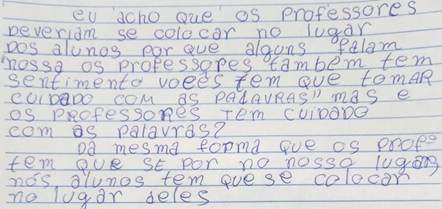 eu acho que os professores
deveriam se colocar no lugar
dos alunos por que alguns falam
"nossa os professores também tem
sentimento voces tem que tomar
cuidado com as palavras" mas e
os professores tem cuidado
com as palavras?
da mesma forma que os profes
tem que se por no nosso lugar,
nós alunos tem que se colocar
no lugar deles